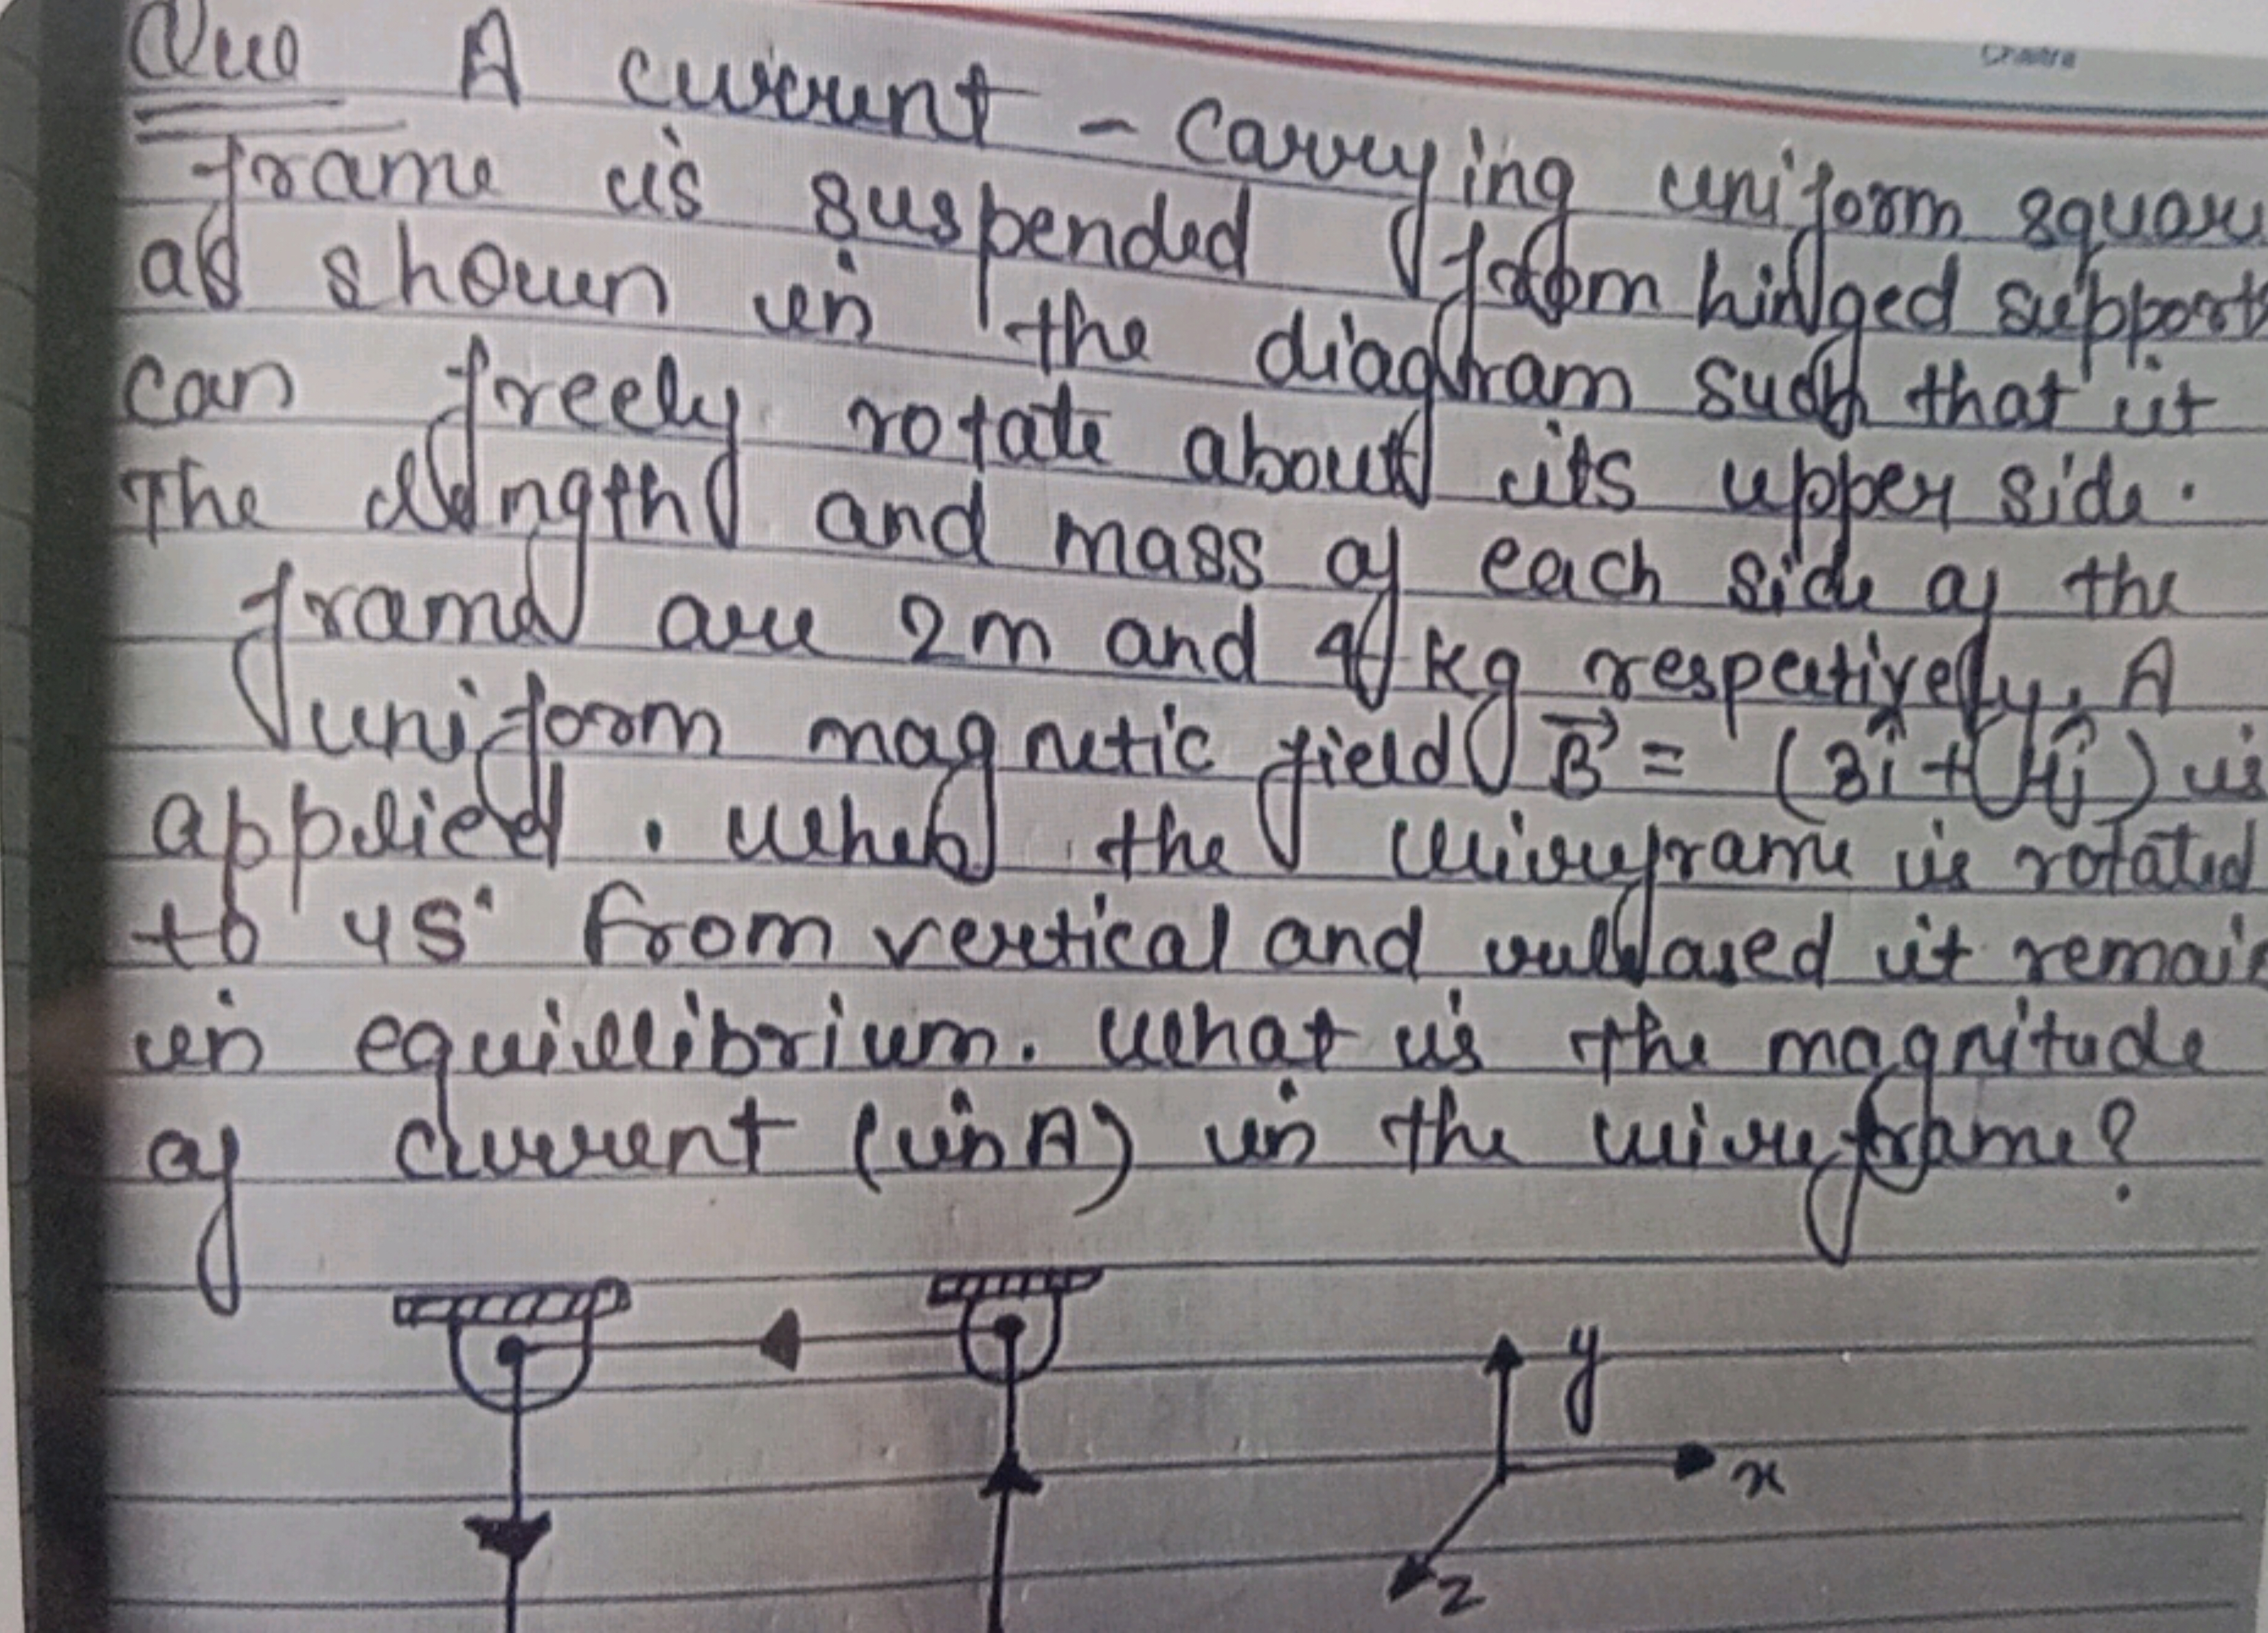 Chaitra
Que A current - carrying uniform square
frame is suspended from hinged support
as shown in the diagram such that it
can freely rotate about its upper side.
The length and mass of each side of the
frame are 2m and 4 kg respectively. A
uniform magnetic field B⃗ = (3î + 4ĵ) is
applied. When the wireframe is rotated
to 45° from vertical and released it remain
in equillibrium. What is the magnitude
of current (in A) in the wireframe?
y
x
z